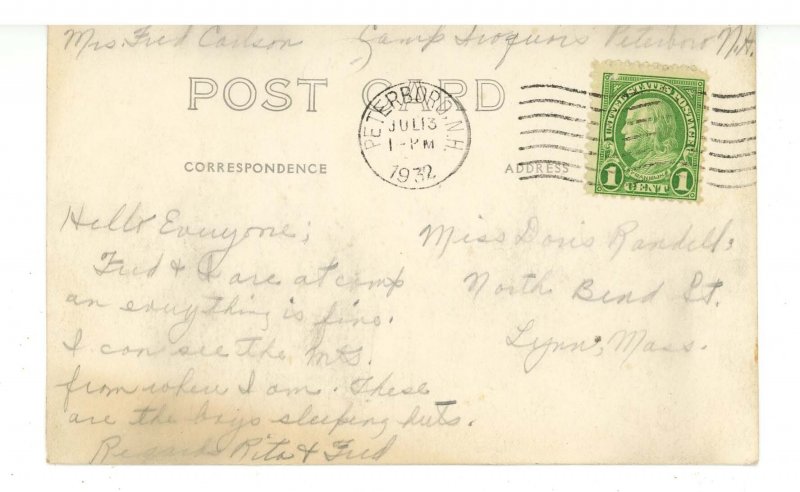 Mrs. Fred Carlson Camp Iroquois Peterboro N.H.
POST CARD
PETERBORO, N.H.
JUL 13
1-PM
1932
UNITED STATES POSTAGE
FRANKLIN
1 CENT 1
CORRESPONDENCE
ADDRESS
Hello Everyone;
Fred & I are at camp
an everything is fine.
I can see the Mts.
from where I am. These
are the boys sleeping huts.
Regards Rita & Fred
Miss Doris Randell;
North Bend St.
Lynn, Mass.